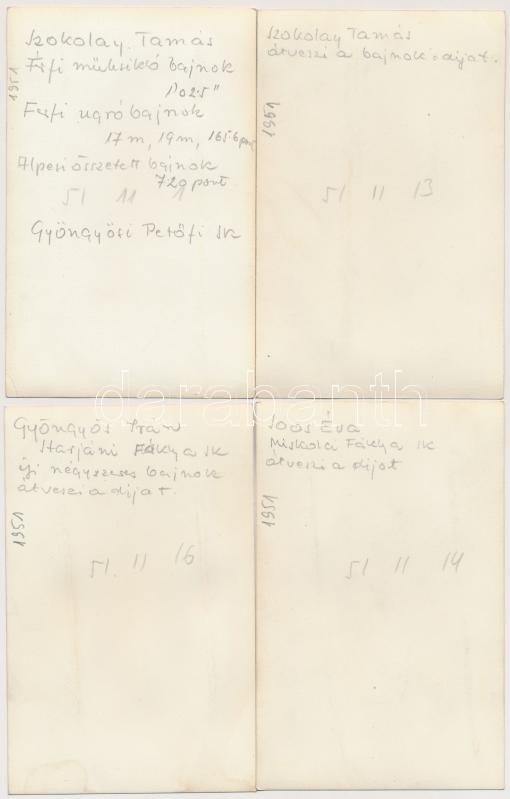 Szokolay Tamás
Férfi műlesikló bajnok
1'02.5"
Férfi ugróbajnok
17 m, 19 m, 165.6 pont
Alpesi összetett bajnok
720 pont
51 11 1
Gyöngyösi Petőfi SK
1951
Szokolay Tamás
átveszi a bajnoki díjat.
1951
51 11 13
Gyöngyös Iván
Fáklya SK
ifi négyszeres bajnok
átveszi a díjat.
1951
51. 11 16
Soós Éva
Miskolci Fáklya SK
átveszi a díjat
1951
51 11 14
darabanth